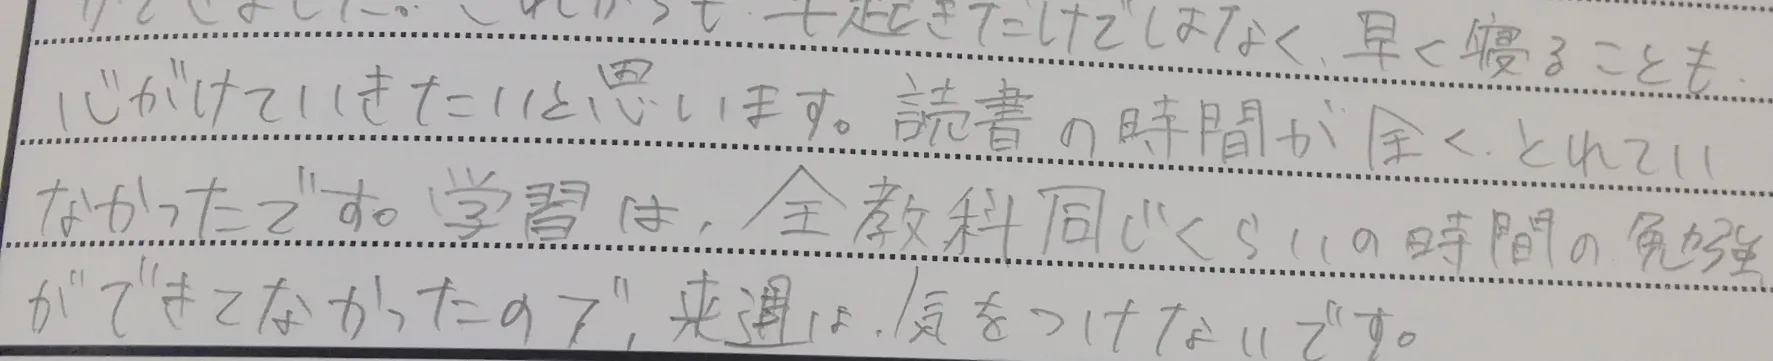 ができました。これからも、早起きだけではなく、早く寝ることも、
心がけていきたいと思います。読書の時間が全く、とれてい
なかったです。学習は、全教科同じくらいの時間の勉強
ができてなかったので、来週は、気をつけたないです。